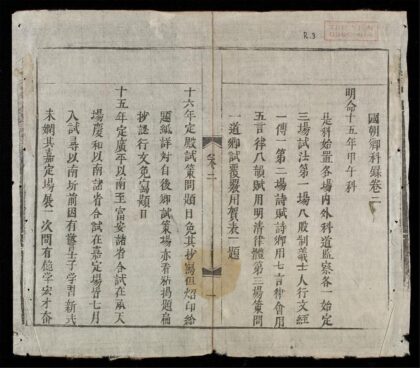 國朝鄉科錄卷二
明命十五年甲午科
是科始置各場內外科道監察各一始定
三場試法第一場八股制義士人行文經
一傳一第二場詩賦詩鄉用七言律會用
五言律八韻賦用明清律體第三場策問
一道鄉試覆覈用賀表一題
卷二
一
十六年定殿試策問題目免其抄寫但炤印給
題紙詳對自後鄉試策場亦看粘揭題篇
抄謎行文免寫題目
十五年定廣平以南至富安諸省合試在承天
場慶和以南諸省合試在嘉定場七月
入試尋以南圻前因有舊士子學習新式
未嫻其嘉定場展一次間有能學宏才奇
R.3